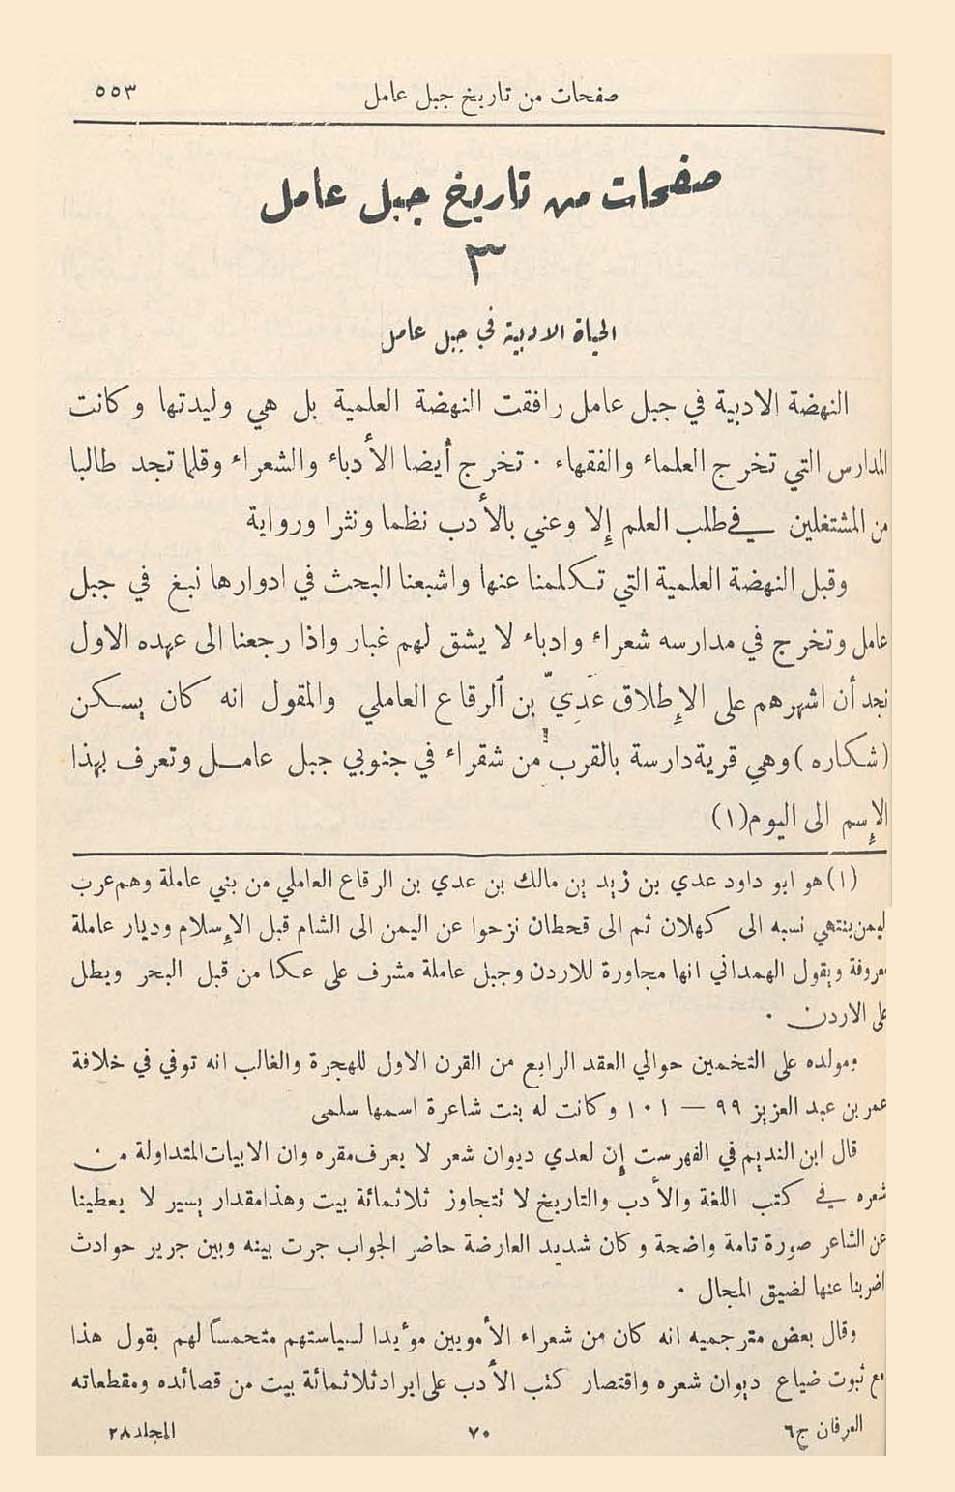 صفحات من تاريخ جبل عامل ٥٥٣
صفحات من تاريخ جبل عامل
٣
الحياة الادبية في جبل عامل
النهضة الادبية في جبل عامل رافقت النهضة العلمية بل هي وليدتها وكانت
المدارس التي تخرج العلماء والفقهاء . تخرج أيضا الأدباء والشعراء وقلما تجد طالبا
من المشتغلين في طلب العلم إلا وعني بالأدب نظما ونثرا ورواية
وقبل النهضة العلمية التي تكلمنا عنها واشبعنا البحث في ادوارها نبغ في جبل
عامل وتخرج في مدارسه شعراء وادباء لا يشق لهم غبار واذا رجعنا الى عهده الاول
نجد أن اشهرهم على الإطلاق عَدِيّ بن الرقاع العاملي والمقول انه كان يسكن
(شكاره) وهي قرية دارسة بالقرب من شقراء في جنوبي جبل عامل وتعرف بهذا
الإسم الى اليوم(١)
(١) هو ابو داود عدي بن زيد بن مالك بن عدي بن الرقاع العاملي من بني عاملة وهم عرب
ليمن ينتهي نسبه الى كهلان ثم الى قحطان نزحوا عن اليمن الى الشام قبل الإسلام وديار عاملة
معروفة ويقول الهمداني انها مجاورة للاردن وجبل عاملة مشرف على عكا من قبل البحر ويطل
على الاردن .
ومولده على التخمين حوالي العقد الرابع من القرن الاول للهجرة والغالب انه توفي في خلافة
عمر بن عبد العزيز ٩٩ — ١٠١ وكانت له بنت شاعرة اسمها سلمى
قال ابن النديم في الفهرست إن لعدي ديوان شعر لا يعرف مقره وان الابيات المتداولة من
شعره في كتب اللغة والأدب والتاريخ لا تتجاوز ثلاثمائة بيت وهذا مقدار يسير لا يعطينا
عن الشاعر صورة تامة واضحة وكان شديد العارضة حاضر الجواب جرت بينه وبين جرير حوادث
اضربنا عنها لضيق المجال .
وقال بعض مترجميه انه كان من شعراء الأمويين مؤيدا لسياستهم متحمساً لهم يقول هذا
مع ثبوت ضياع ديوان شعره واقتصار كتب الأدب على ايراد ثلاثمائة بيت من قصائده ومقطعاته
العرفان ج٦ ٧٠ المجلد ٢٨